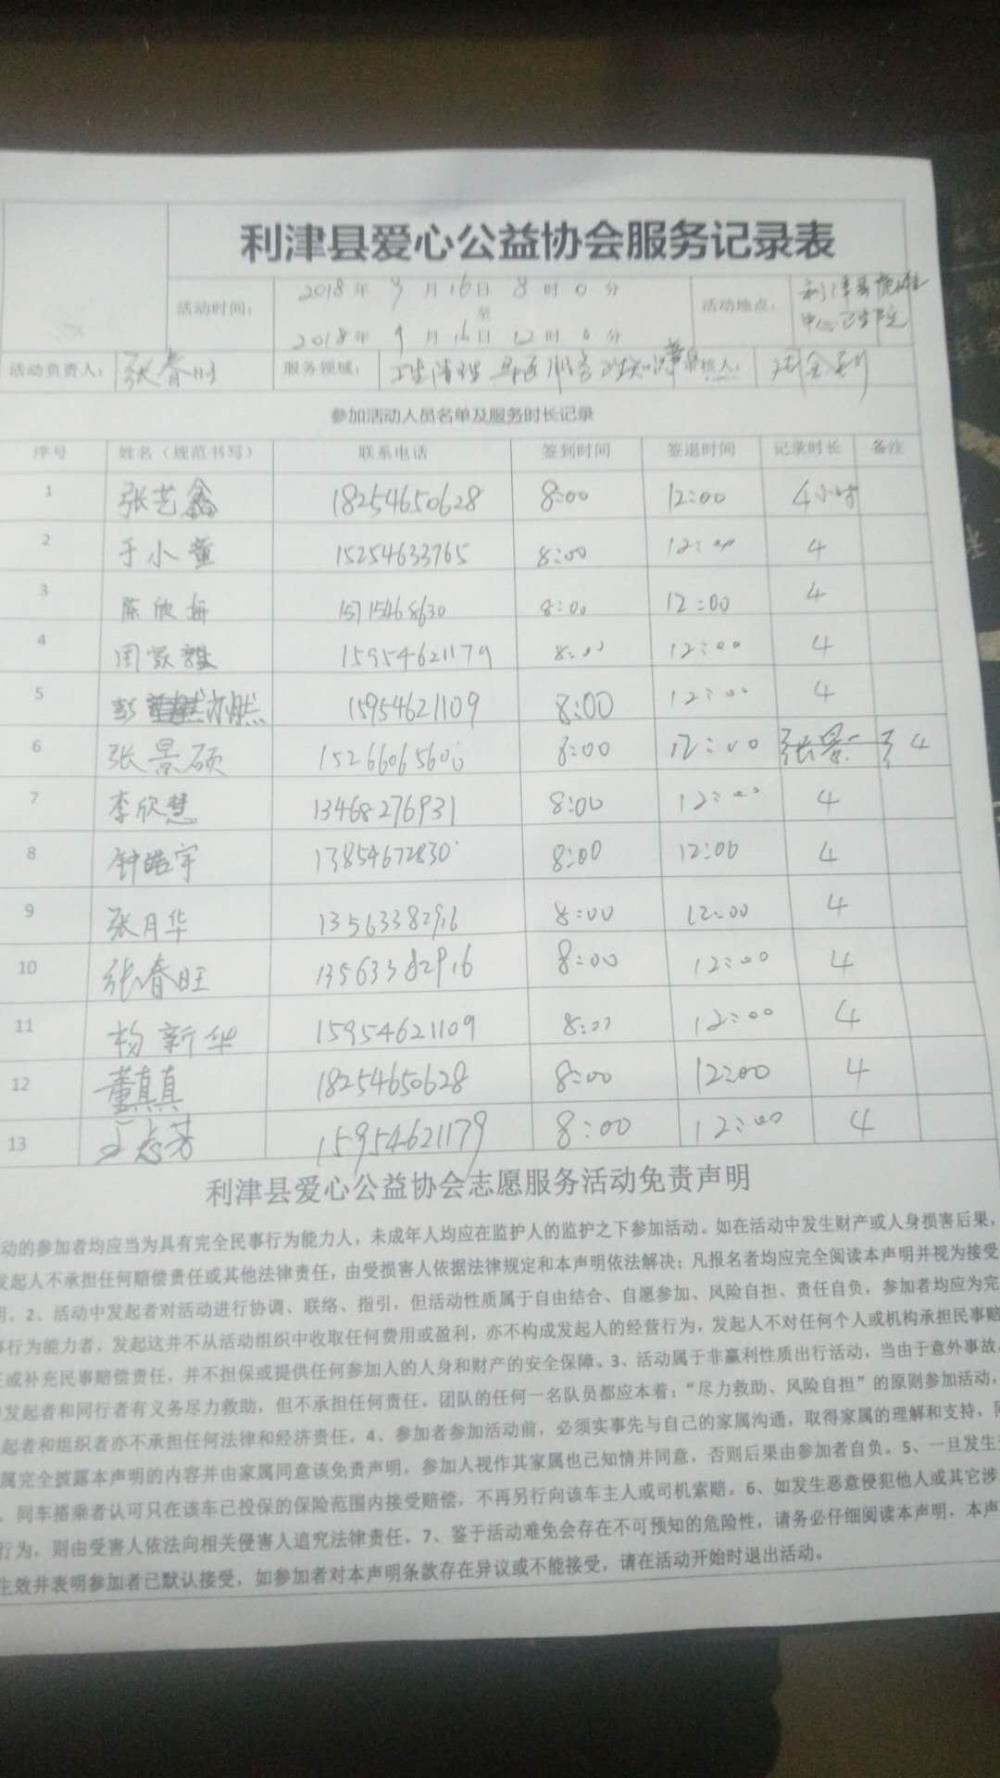 利津县爱心公益协会服务记录表
活动时间： 2018年 9月16日 8时0分
至
2018年 9月16日 12时0分
活动地点： 利津县
中心卫生院
活动负责人： 张春旺 服务领域： 核人：
参加活动人员名单及服务时长记录
序号 姓名（规范书写） 联系电话 签到时间 签退时间 记录时长 备注
1 张艺鑫 18254650628 8:00 12:00 4小时
2 于小童 15254633765 8:00 12:00 4
3 陈欣 8:00 12:00 4
4 周家 15954621179 8:00 12:00 4
5 彭 15954621109 8:00 12:00 4
6 张景硕 8:00 12:00 4
7 李欣慧 13468276931 8:00 12:00 4
8 钟皓宇 13854672830 8:00 12:00 4
9 张月华 13563382916 8:00 12:00 4
10 张春旺 13563382916 8:00 12:00 4
11 杨新华 15954621109 8:00 12:00 4
12 董真真 18254650628 8:00 12:00 4
13 王志芳 15954621179 8:00 12:00 4
利津县爱心公益协会志愿服务活动免责声明
动的参加者均应当为具有完全民事行为能力人，未成年人均应在监护人的监护之下参加活动。如在活动中发生财产或人身损害后果，
发起人不承担任何赔偿责任或其他法律责任，由受损害人依据法律规定和本声明依法解决；凡报名者均应完全阅读本声明并视为接受
明。2、活动中发起者对活动进行协调、联络、指引，但活动性质属于自由结合、自愿参加、风险自担、责任自负，参加者均应为完
事行为能力者，发起这并不从活动组织中收取任何费用或盈利，亦不构成发起人的经营行为，发起人不对任何个人或机构承担民事赔
任或补充民事赔偿责任，并不担保或提供任何参加人的人身和财产的安全保障。3、活动属于非赢利性质出行活动，当由于意外事故
发起者和同行者有义务尽力救助，但不承担任何责任。团队的任何一名队员都应本着：“尽力救助、风险自担”的原则参加活动，
起者和组织者亦不承担任何法律和经济责任。4、参加者参加活动前，必须实事先与自己的家属沟通，取得家属的理解和支持，同
属完全披露本声明的内容并由家属同意该免责声明，参加人视作其家属也已知情并同意，否则后果由参加者自负。5、一旦发生
，同车搭乘者认可只在该车已投保的保险范围内接受赔偿，不再另行向该车主人或司机索赔。6、如发生恶意侵犯他人或其它涉
行为，则由受害人依法向相关侵害人追究法律责任。7、鉴于活动难免会存在不可预知的危险性，请务必仔细阅读本声明，本声
生效并表明参加者已默认接受，如参加者对本声明条款存在异议或不能接受，请在活动开始时退出活动。